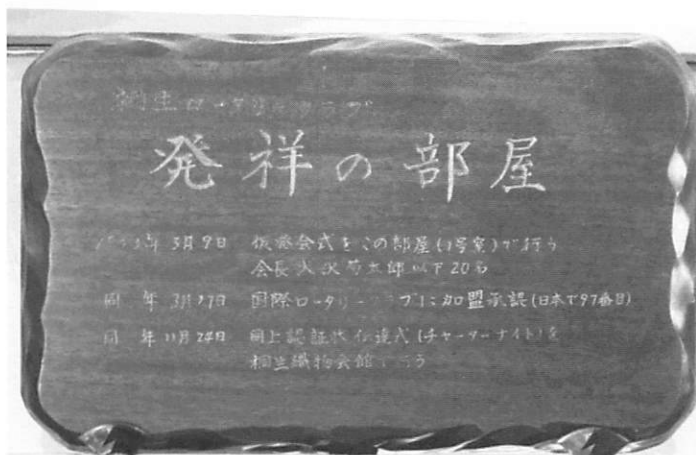 桐生ロータリークラブ
発祥の部屋
年3月9日 仮発会式をこの部屋(1号室)で行う
会長大沢菊太郎以下20名
同 年3月17日 国際ロータリークラブに加盟承認(日本で97番目)
同 年11月24日 同上認証状伝達式(チャーターナイト)を
桐生織物会館で行う